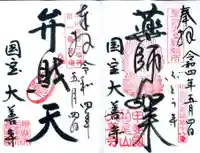 奉拝
令和四年五月四日
ぶどう寺
薬師如来
国宝 大善寺
奉拝
令和四年
五月四日
弁財天
国宝 大善寺